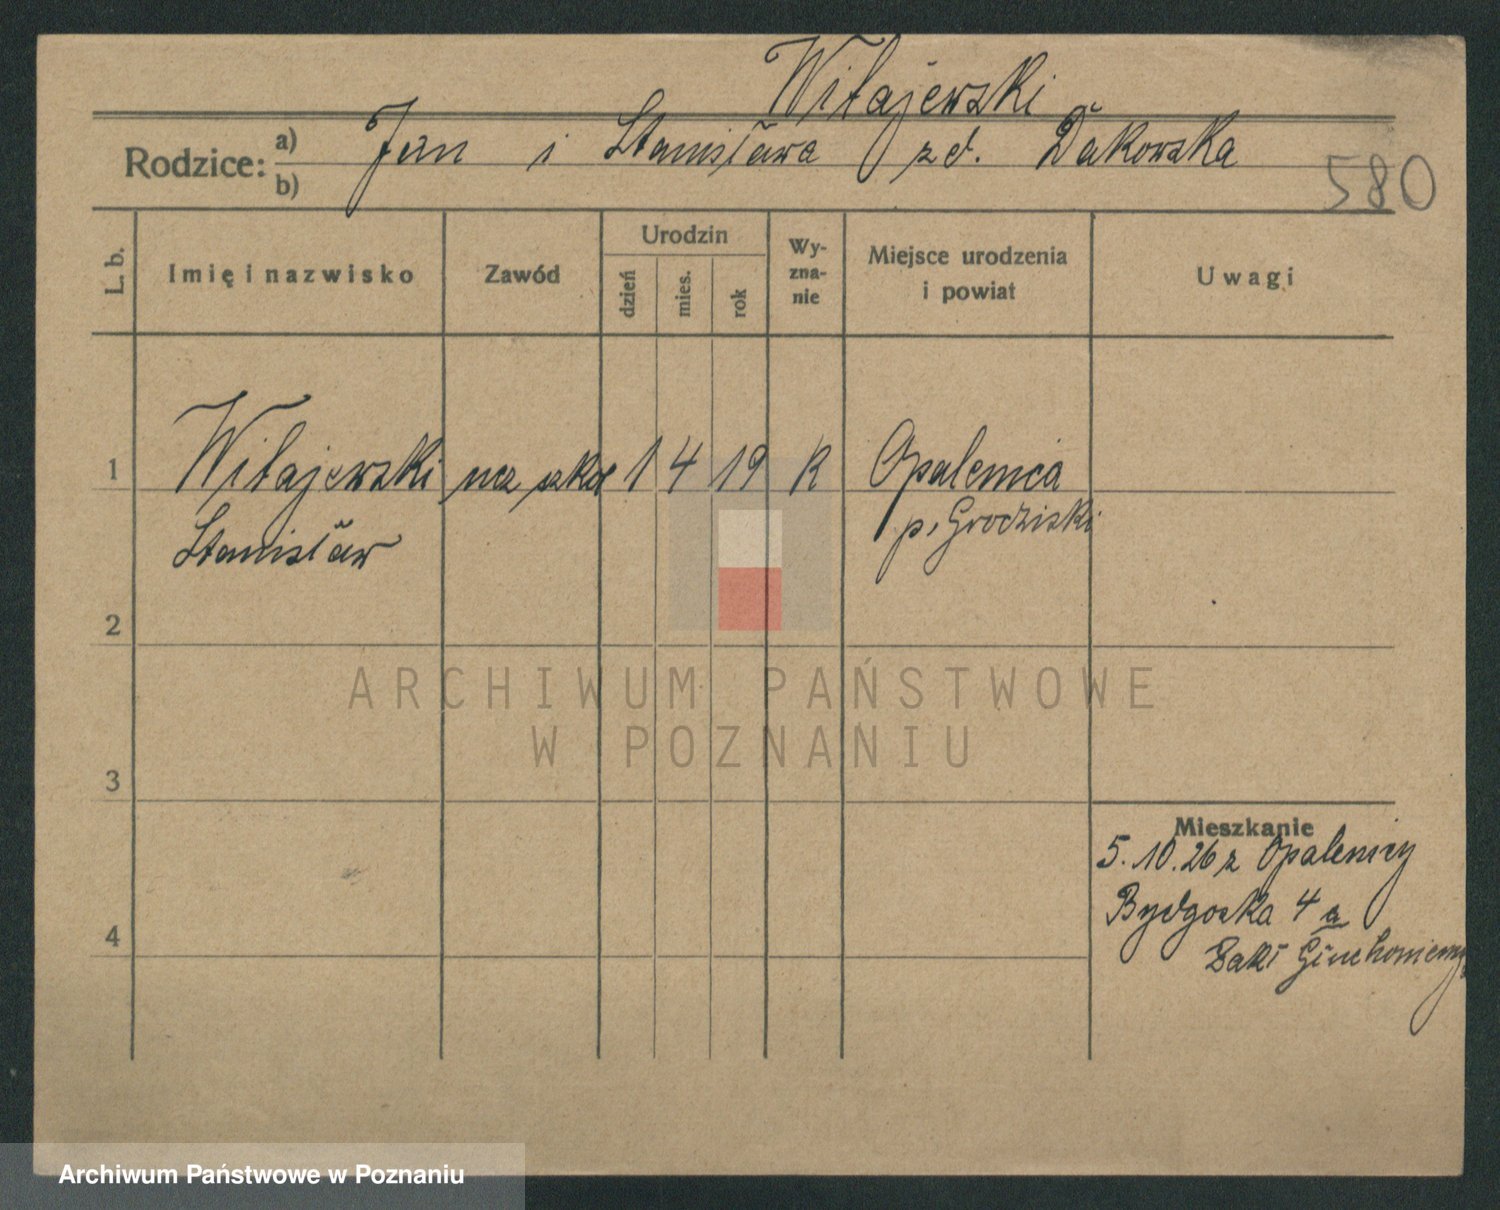 Witajewski
Rodzice: a) Jan i Stanisława zd. Dakowska
b)
580
L. b.
Imię i nazwisko
Zawód
Urodzin
dzień
mies.
rok
Wy-
zna-
nie
Miejsce urodzenia
i powiat
Uwagi
1 Witajewski ucz szkol 1 4 19 R Opalenica
Stanisław p. Grodziski
2
3
4
Mieszkanie
5.10.26 z Opalenicy
Bydgoska 4a
Zakł Głuchoniemy
ARCHIWUM PAŃSTWOWE
W POZNANIU
Archiwum Państwowe w Poznaniu